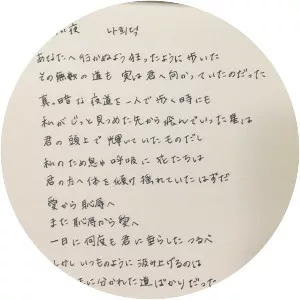 い夜 나희덕
あなたへ行かぬよう狂ったように歩いた
その無数の道も 実は君へ向かっていたのだった
真っ暗な夜道を一人で歩く時にも
私がじっと見つめた先から飛んでいった星は
君の頭上で輝いていたものだし
私のため息や呼吸に 花たちは
君の方へ体を傾け揺れていたはずだ
愛から恥辱へ
また恥辱から愛へ
一日に何度も君に垂らしたつるべ
しかし いつものように汲み上げるのは
に分かれた道ばかりだった